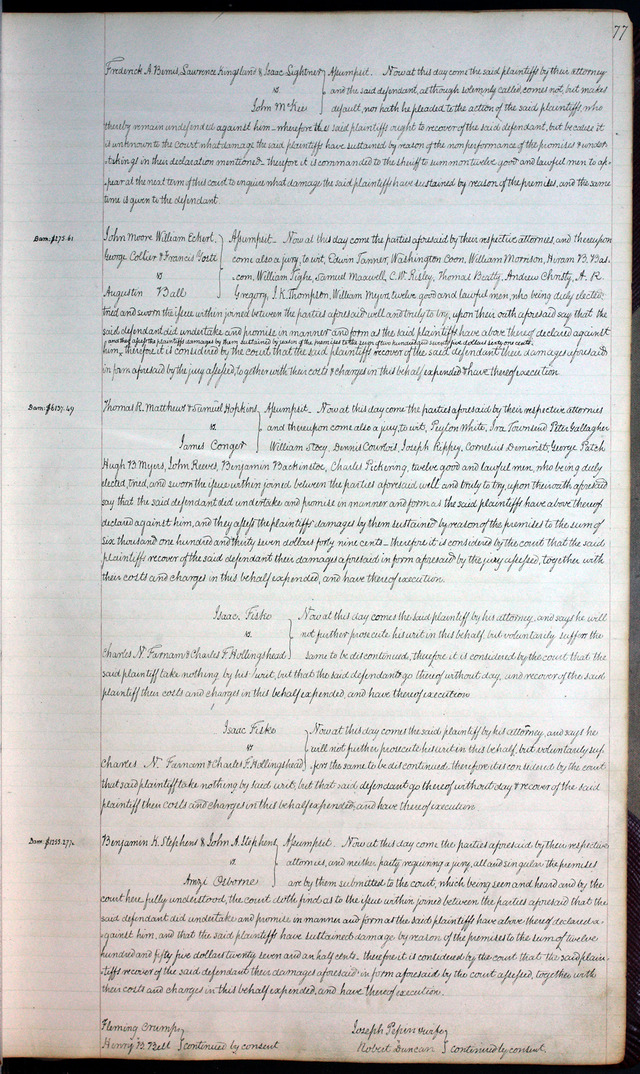 77
Frederick A. Bemis, Lawrence Kingsland & Isaac Lightner } Assumpsit. Now at this day come the said plaintiffs by their attorney
vs. and the said defendant, although solemnly called, comes not, but makes
John McKee default, nor hath he pleaded to the action of the said plaintiffs, who
thereby remain undefended against him – wherefore the said plaintiffs ought to recover of the said defendant, but because it
is unknown to the Court what damage the said plaintiffs have sustained by reason of the non performance of the promises & under-
takings in their declaration mentioned – therefore it is commanded to the sheriff to summon twelve good and lawful men to ap-
pear at the next term of this court to enquire what damage the said plaintiffs have sustained by reason of the premises, and the same
time is given to the defendant.
Dam: $275.61 John Moore William Eckert, } Assumpsit – Now at this day come the parties aforesaid by their respective attornies, and thereupon
George Collier & Francis come also a jury, to wit, Edwin Tanner, Washington Coon, William Morrison, Hiram B. Bas-
vs com, William Tighe, Samuel Maxwell, C. W. Risley, Thomas Beatty, Andrew Christy, A. R.
Augustin Ball Gregory, J. K. Thompson, William Myers twelve good and lawful men, who being duly elected,
tried and sworn the issue within joined between the parties aforesaid well and truly to try, upon their oath aforesaid say that the
said defendant did undertake and promise in manner and form as the said plaintiffs have above thereof declared against
and they assess the plaintiffs damages by them sustained by reason of the premises to the sum of two hundred and seventy five dollars sixty one cents.
him, therefore it is considered by the court that the said plaintiffs recover of the said defendant their damages aforesaid
in form aforesaid by the jury assessed, together with their costs & charges in this behalf expended & have thereof execution
Dam: $6137.49 Thomas R. Matthews & Samuel Hopkins } Assumpsit – Now at this day come the parties aforesaid by their respective attornies
vs. and thereupon come also a jury, to wit, Peyton White, Ira Townsend Peter Gallagher
James Conger William Stocy, Dennis Courtois, Joseph Rippey, Cornelius George Patch
Hugh B Myers, John Reeves, Benjamin Backinstoe, Charles Pickering, twelve good and lawful men, who being duly
elected, tried, and sworn the issue within joined between the parties aforesaid well and truly to try, upon their oath aforesaid
say that the said defendant did undertake and promise in manner and form as the said plaintiffs have above thereof
declared against him, and they assess the plaintiffs damages by them sustained by reason of the premises to the sum of
six thousand one hundred and thirty seven dollars forty nine cents – therefore it is considered by the court that the said
plaintiffs recover of the said defendant their damages aforesaid in form aforesaid by the jury assessed, together with
their costs and charges in this behalf expended, and have thereof execution.
Isaac Fiske } Now at this day comes the said plaintiff by his attorney, and says he will
vs. not further prosecute his writ in this behalf, but voluntarily suffers the
Charles N. Farnam & Charles F. Hollingshead same to be discontinued, therefore it is considered by the court that the
said plaintiff take nothing by his writ, but that the said defendants go thereof without day, and recover of the said
plaintiff their costs and charges in this behalf expended, and have thereof execution
Isaac Fiske } Now at this day comes the said plaintiff by his attorney, and says he
vs will not further prosecute his writ in this behalf, but voluntarily suf-
Charles N. Farnam & Charles F. Hollingshead fers the same to be discontinued. therefore it is considered by the court
that said plaintiff take nothing by said writ, but that said defendant go thereof without day & recover of the said
plaintiff their costs and charges in this behalf expended, and have thereof execution.
Dam: $1255.27½ Benjamin K. Stephens & John A. Stephens } Assumpsit. Now at this day come the parties aforesaid by their respective
vs. attornies, and neither party requiring a jury, all and singular the premises
Amzi Osborne are by them submitted to the court, which being seen and heard and by the
court here fully understood, the court doth find as to the issue within joined between the parties aforesaid that the
said defendant did undertake and promise in manner and form as the said plaintiffs have above thereof declared a-
gainst him, and that the said plaintiffs have sustained damage by reason of the premises to the sum of twelve
hundred and fifty five dollars twenty seven and an half cents. therefore it is considered by the court that the said plain-
tiffs recover of the said defendant their damages aforesaid in form aforesaid by the court assessed, together with
their costs and charges in this behalf expended, and have thereof execution.
Fleming Crump, Joseph Papin
Henry B. Belt } continued by consent Robert Duncan } continued by consent.